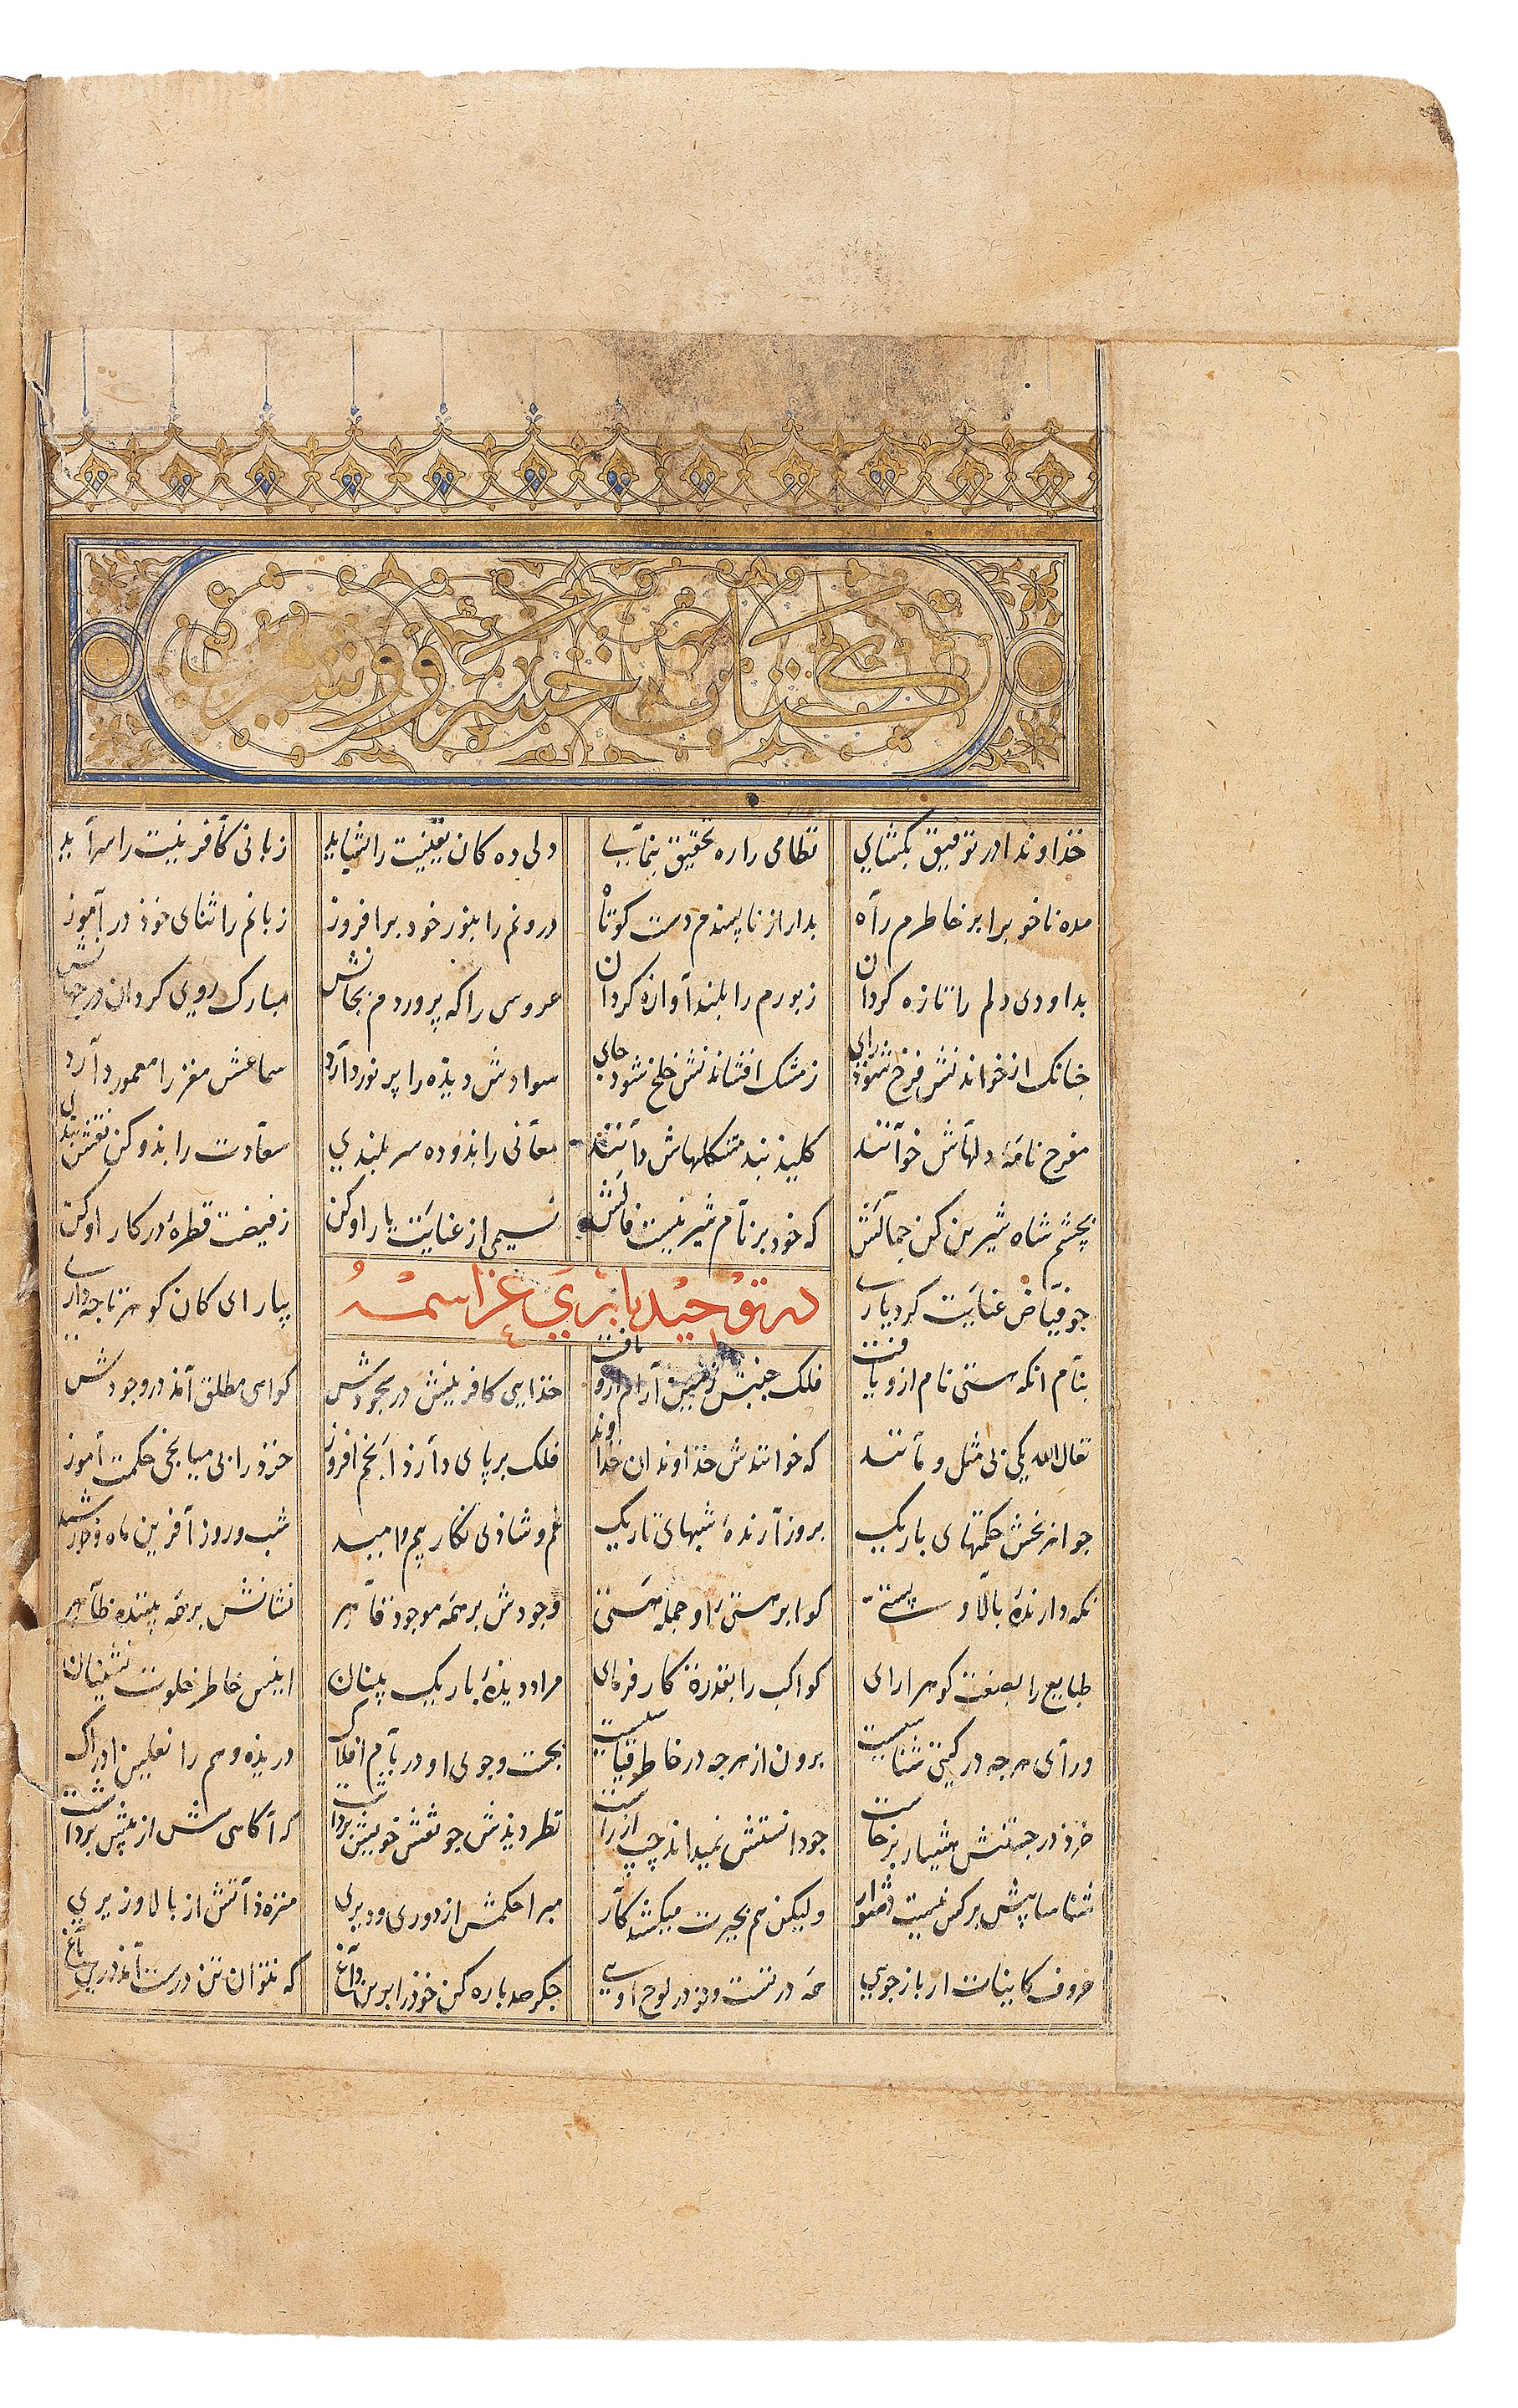 کتاب خسرو و شیرین
خذاوندا در توفیق بکشای نظامی را ره تحقیق بنمای دلی ده کان یقینیت را بشاید زبانی کافرینیت را سراید
مده ناخوب را بر خاطرم راه بدار از ناپسندم دست کوتاه درونم را بنور خود برافروز زبانم را ثنای خوذ در آموز
بداودی دلم را تازه کردان زبورم را بلند آوازه کردان عروسی را که پروردم بجانش مبارک روی کردان در جهانش
جنانک از خواندنش فرخ شوذ رای ز مشک افشاندنش خلخ شود جای سوادش دیذه را پر نور دارد سماعش مغز را معمور دارد
مفرح نامهٔ دلهاش خوانند کلیذ بند مشکلهاش دانند معانی را بذو ده سر بلندی سعادت را بذو کن نقش بندی
بچشم شاه شیرین کن جمالش که خود بر نام شیرینست فالش نسیمی از عنایت یار او کن ز فیضت قطرهٔ در کار او کن
جو فیاض عنایت کرد یاری بیار ای کان کوهر تا جه داری
در توحید باری عز اسمه
بنام انکه هستی نام ازو یافت فلک جنبش زمین آرام ازو یافت خذایی کافرینش در سجودش کواهی مطلق آمذ در وجودش
تعالی الله یکی بی مثل و مانند که خوانندش خذاوندان خذاوند فلک بر پای دارذ انجم افروز خرذ را بی میانجی حکمت آموز
جواهر بخش حکمتهای باریک بروز آرندهٔ شبهای تاریک غم و شاذی نکار و بیم و امید شب و روز آفرین و ماه و خورشید
نکه دارندهٔ بالا و پستی کوا بر هستی او جمله هستی وجودش بر همه موجوذ قاهر نشانش بر همه بیننده ظاهر
طبایع را بصنعت کوهر ارای کواکب را بقدرت کار فرمای مراد دیذهٔ باریک بینان انیس خاطر خلوت نشینان
ورای هرجه در کیتی شناسیست برون از هرجه در خاطر قیاسیست بجست و جوی او در بام افلاک دریذه وهم را نعلین ادراک
خرذ در جستنش هشیار برخاست جو دانستش نمیداند چپ از راست نظر دیذش جو نقش خویش برداشت که آکاهی ش از پیش برداشت
شناسا پیش بر کس نیست دشوار ولیکن هم بحیرت میکشد کار مبرا حکمش از دوری و دیری منزه ذاتش از بالا و زیری
حروف کاینات ار باز جویی همه در تست و تو در لوح اویی جکر صد باره کن خوذ را برین داغ که نتوان تن درست آمذ درین باغ